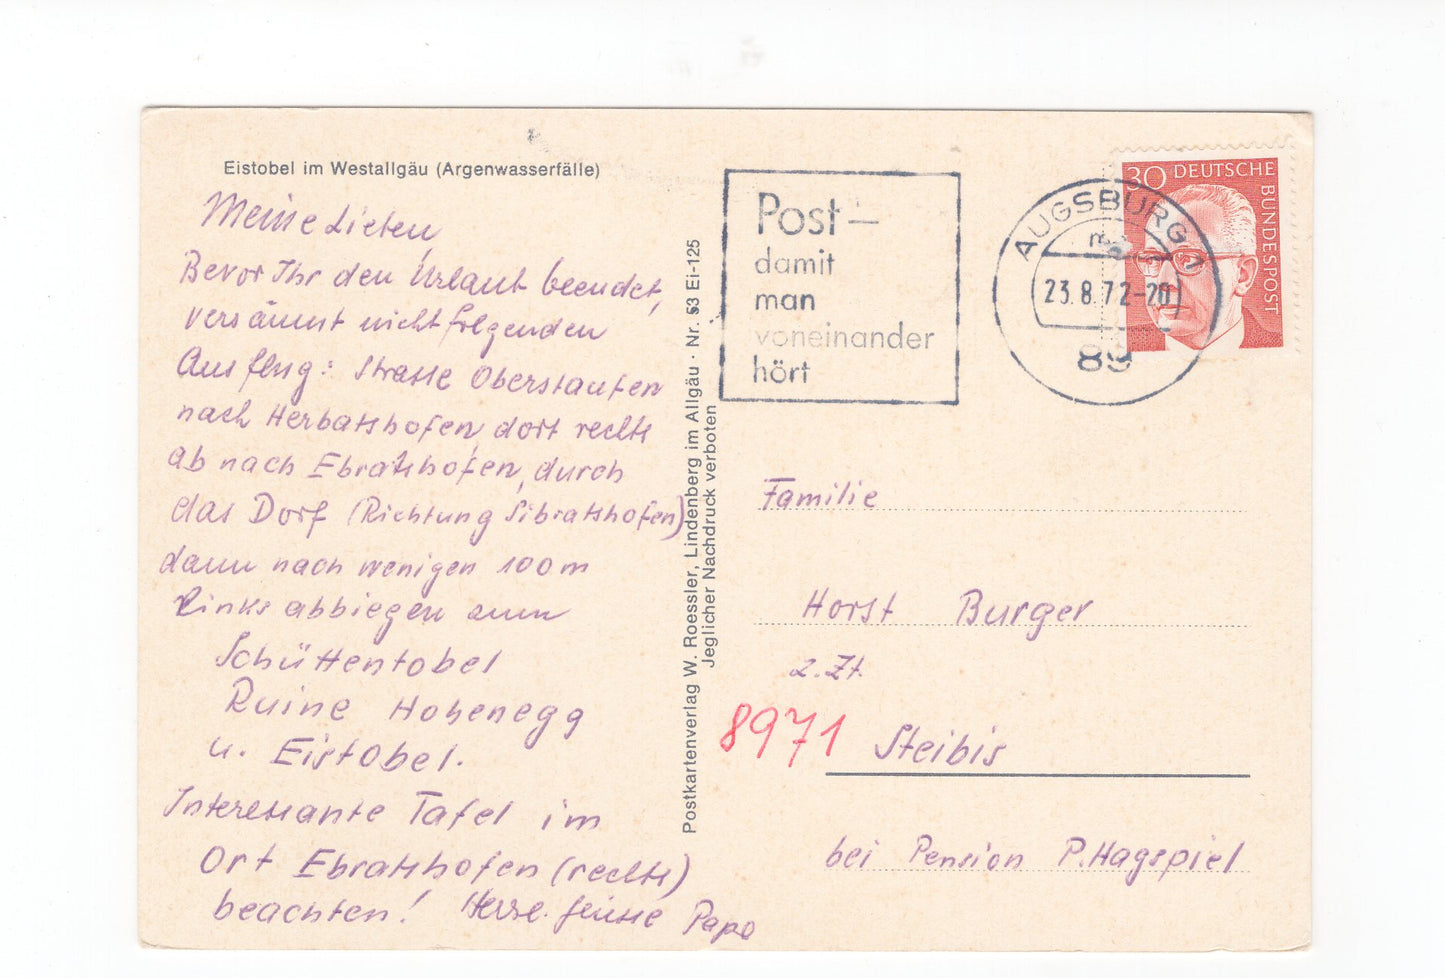 Eistobel im Westallgäu (Argenwasserfälle)
Meine Lieben,
Bevor Ihr den Urlaub beendet,
versäumt nicht folgenden
Ausflug: Strasse Oberstaufen
nach Herbatshofen, dort rechts
ab nach Ebratshofen, durch
das Dorf (Richtung Sibratshofen)
dann nach wenigen 100 m
links abbiegen zum
Schüttentobel
Ruine Hohenegg
u. Eistobel.
Interessante Tafel im
Ort Ebratshofen (rechts)
beachten! Herzl. Grüsse Papa
Postkartenverlag W. Roessler, Lindenberg im Allgäu · Nr. 53 Ei-125
Jeglicher Nachdruck verboten
Post –
damit
man
voneinander
hört
AUGSBURG 1
23.8.72-20
89
30 DEUTSCHE
BUNDESPOST
Familie
Horst Burger
z. Zt.
8971 Steibis
bei Pension P. Hagspiel